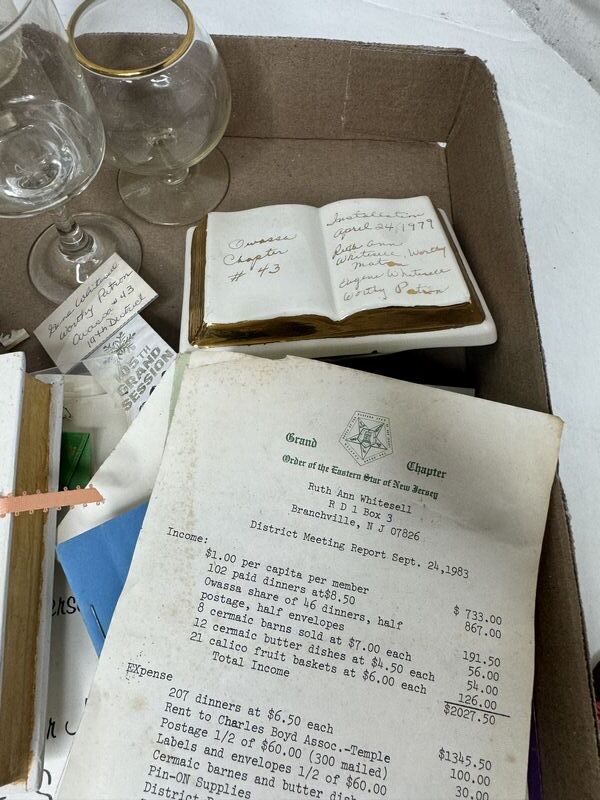 Owassa
Chapter
# 43
Installation
April 24, 1979
Ruth Ann
Whitesell, Worthy
Matron
Eugene Whitesell
Worthy Patron
Gene Whitesell
Worthy Patron
Owassa #43
19th District
105TH
GRAND
SESSION
Grand Chapter
Order of the Eastern Star of New Jersey
Ruth Ann Whitesell
R D 1 Box 3
Branchville, N J 07826
District Meeting Report Sept. 24,1983
Income:
$1.00 per capita per member $ 733.00
102 paid dinners at$8.50 867.00
Owassa share of 46 dinners, half
postage, half envelopes 191.50
8 cermaic barns sold at $7.00 each 56.00
12 cermaic butter dishes at $4.50 each 54.00
21 calico fruit baskets at $6.00 each 126.00
Total Income $2027.50
EXpense
207 dinners at $6.50 each $1345.50
Rent to Charles Boyd Assoc.-Temple 100.00
Postage 1/2 of $60.00 (300 mailed) 30.00
Labels and envelopes 1/2 of $60.00
Cermaic barnes and butter
Pin-ON Supplies
District